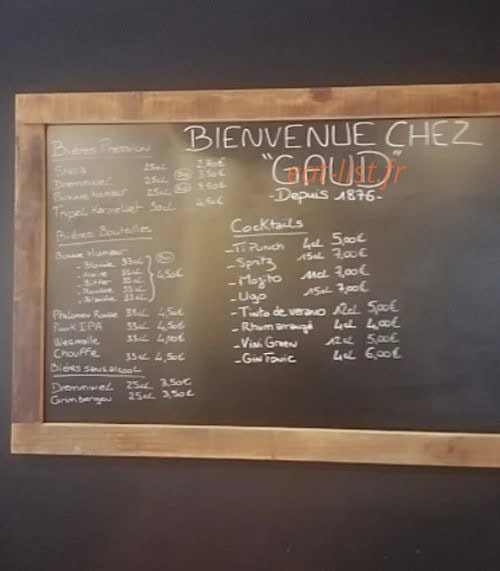 BIENVENUE CHEZ
"GAUD"
-Depuis 1876-
Bières Pression
Stella 25cL 2,80€
Dremmwel 25cL Bio 3,50€
Bonne humeur 25cL Bio 3,50€
Tripel Karmeliet 30cL 4,50€
Bières Bouteilles
Bonne Humeur Bio
- Blonde 33cL
- Noire 33cL
- Bitter 33cL
- Rousse 33cL
- Blanche 33cL
4,50€
Philomen Rousse 33cL 4,50€
Punk IPA 33cL 4,50€
Wesmalle 33cL 4,00€
Chouffe 33cL 4,50€
Bières sans alcool
Dremmwel 25cL 3,50€
Grimbergen 25cL 3,50€
Cocktails
- Ti Punch 4cL 5,00€
- Spritz 15cL 7,00€
- Mojito 11cL 7,00€
- Ugo 15cL 7,00€
- Tinto de verano 12cL 5,00€
- Rhum arrangé 4cL 4,00€
- Vini Green 12cL 5,00€
- Gin Tonic 4cL 6,00€